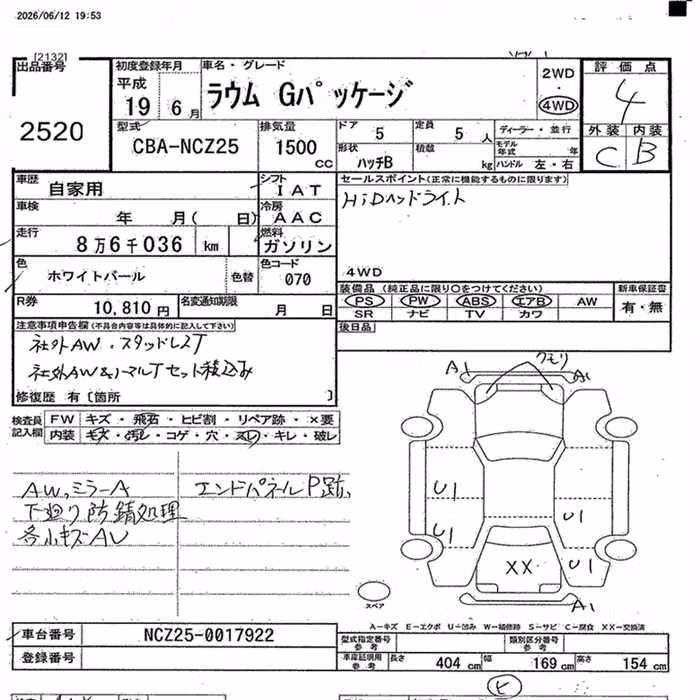 2026/06/12 19:53
[2132]
出品番号
2520
初度登録年月
平成
19 6月
車名・グレード
ラウム Gパッケージ
2WD
4WD
評価点
4
外装 内装
C B
型式
CBA-NCZ25
排気量
1500 CC
ドア
5
定員
5 人
形状
ハッチB
積載
kg
ディーラー・並行
モデル年式 年
ハンドル 左・右
車歴
自家用
シフト
IAT
車検
年 月( 日)
冷房
AAC
走行
8万6千036 km
燃料
ガソリン
色
ホワイトパール
色替
色コード
070
R券
10,810円
名変通知期限
月 日
セールスポイント(正常に機能するものに限ります)
HiDヘッドライト
4WD
装備品(純正品に限り○をつけてください)
PS PW ABS エアB AW
SR ナビ TV カワ
新車保証書
有・無
後日品
注意事項申告欄(不具合内容等は具体的に記入して下さい)
社外AW・スタッドレスT
社外AW&ノーマルTセット積込み
修復歴 有〔箇所 〕
検査員記入欄
FW キズ・飛石・ヒビ割・リペア跡・×要
内装 キズ・汚レ・コゲ・穴・スレ・キレ・破レ
AW,ミラーA
下廻り防錆処理
各小キズAU
エンドパネルP跡,
クモリ
A1 A1
U1
U1 U1
XX U1
A1
スペア
A-キズ E-エクボ U-凹み W-補修跡 S-サビ C-腐食 XX-交換済
車台番号
NCZ25-0017922
登録番号
型式指定番号 参考
類別区分番号 参考
車庫証明用 参考
長さ 404 cm 幅 169 cm 高さ 154 cm